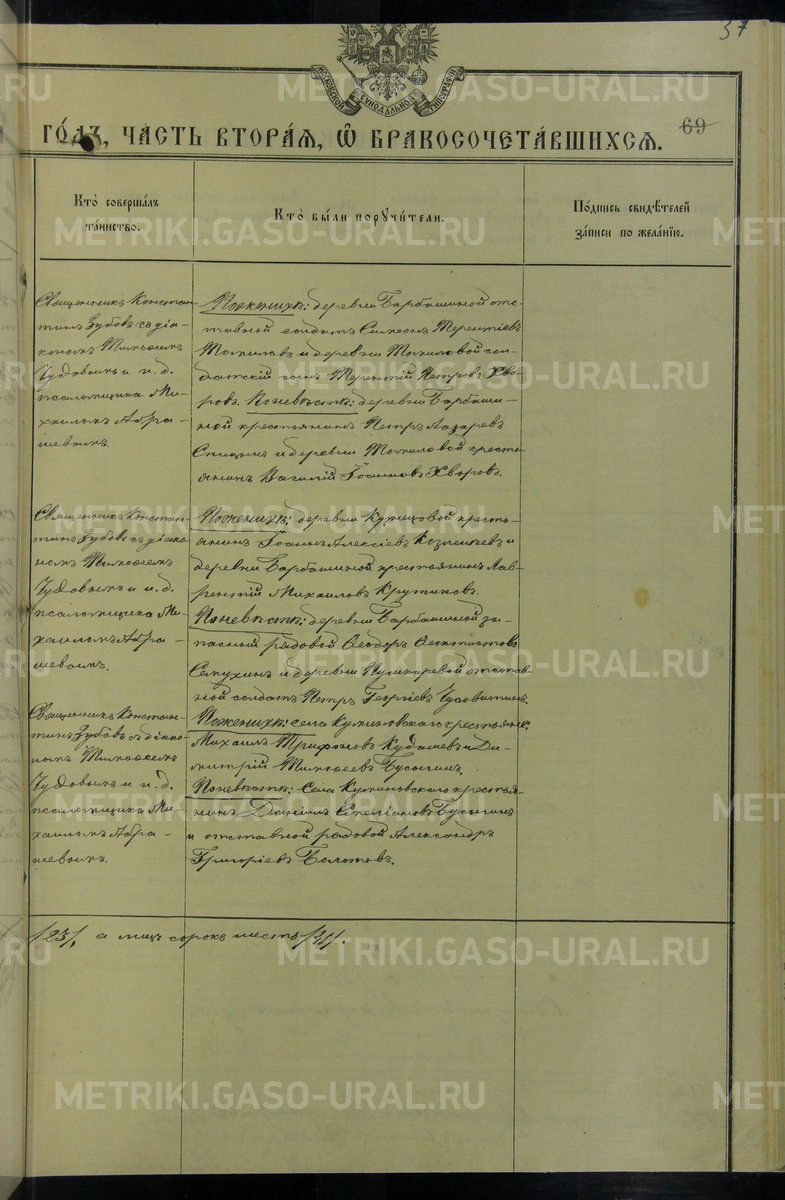 37
МОСКОВСКОЙ СѴНОДАЛЬНОЙ ТИПОГРАФІИ
ГО́ДЪ, ЧА́СТЬ ВТОРА́Ѧ, Ѽ БРАКОСОЧЕТА́ВШИХСѦ.
69
Кто̀ соверша́лъ
та́инство.
Кто̀ бы́ли порꙋчи́тели.
По́дпись свидѣ́телей
за́писи по жела́нїю.
Священникъ Констан-
тинъ Зубовъ съ діа-
кономъ Тимофеемъ
Чудовымъ и и. д.
псаломщика Ми-
хаиломъ Абра-
шевымъ.
По женихѣ: деревни Барбашиной отс-
тавной солдатъ Симеонъ Терентіевъ
Могилевъ и деревни Могиловой сол-
датскій сынъ Терентій Петровъ Хво-
ровъ. По невѣстѣ: деревни Барбаши-
ной крестьянинъ Петръ Лазаревъ
Спицынъ и деревни Могиловой кресть-
янинъ Василій Іоанновъ Хворовъ.
Священникъ Констан-
тинъ Зубовъ съ діако-
номъ Тимофеемъ
Чудовымъ и и. д.
псаломщика Ми-
хаиломъ Абра-
шевымъ.
По женихѣ: деревни Кужецовой кресть-
янинъ Іоаннъ Алексіевъ и
деревни Барбашиной крестьянинъ Лав-
рентій Михаиловъ Крутиковъ.
По невѣстѣ: деревни Барбашиной за-
пасный рядовой Ѳеодоръ Ѳеоктистовъ
Семухинъ и деревни Пушкаревой отстав-
ной солдатъ Петръ Георгіевъ Чусовитинъ.
Священникъ Констан-
тинъ Зубовъ съ діако-
номъ Тимофеемъ
Чудовымъ и и. д.
псаломщика Ми-
хаиломъ Абра-
шевымъ.
По женихѣ: села Куминовскаго крестьяне:
Михаилъ Трифоновъ Кудашевъ и Ди-
митрій Тимофеевъ Бусыгинъ.
По невѣстѣ: Села Куминовскаго крестья-
нинъ Даніилъ Емеліановъ Бусыгинъ
и отставной рядовой Александръ
Григоріевъ Болотовъ.
/23/, а лицъ сорокъ шесть
METRIKI.GASO-URAL.RU